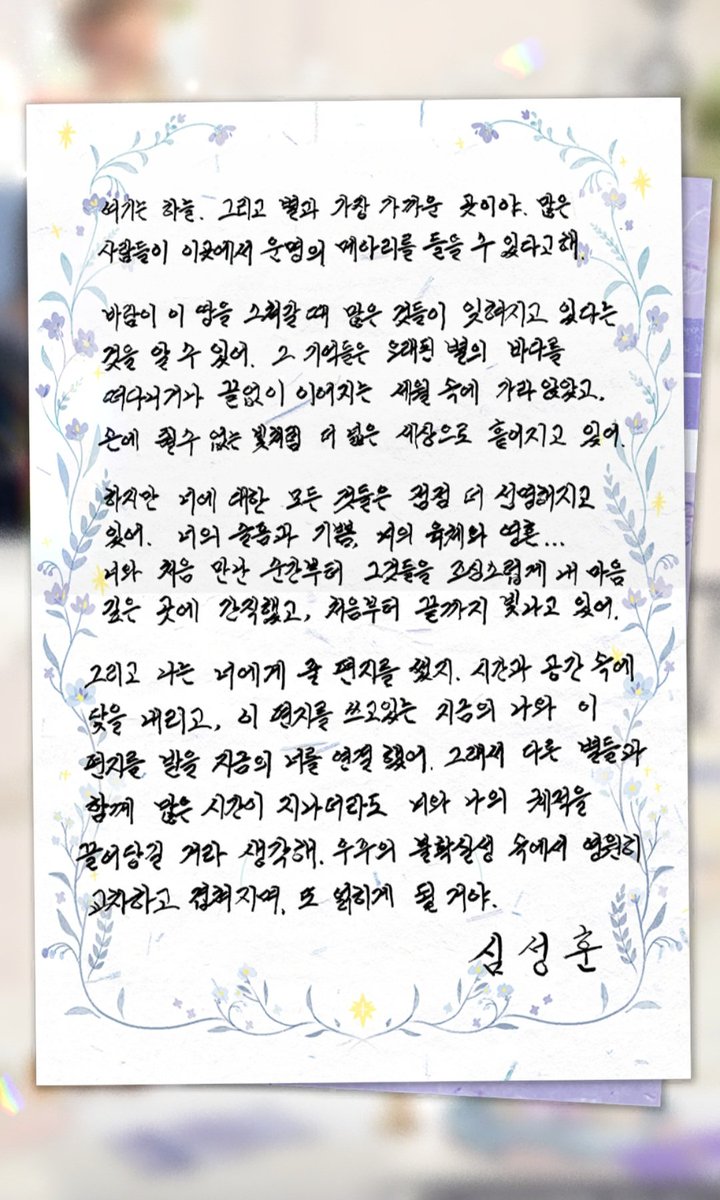 여기는 하늘. 그리고 별과 가장 가까운 곳이야. 많은
사람들이 이곳에서 운명의 메아리를 들을 수 있다고 해.
바람이 이 땅을 스쳐갈 때 많은 것들이 잊혀지고 있다는
것을 알 수 있어. 그 기억들은 오래된 별의 바다를
떠다니거나 끝없이 이어지는 세월 속에 가라앉았고,
손에 쥘 수 없는 빛처럼 더 넓은 세상으로 흩어지고 있어.
하지만 너에 대한 모든 것들은 점점 더 선명해지고
있어. 너의 슬픔과 기쁨, 너의 육체와 영혼...
너와 처음 만난 순간부터 그것들을 조심스럽게 내 마음
깊은 곳에 간직했고, 처음부터 끝까지 빛나고 있어.
그리고 나는 너에게 줄 편지를 썼지. 시간과 공간 속에
닻을 내리고, 이 편지를 쓰고있는 지금의 나와 이
편지를 받을 지금의 너를 연결했어. 그래서 다른 별들과
함께 많은 시간이 지나더라도 너와 나의 궤적을
끌어당길 거라 생각해. 우주의 불확실성 속에서 영원히
교차하고 겹쳐지며, 또 얽히게 될 거야.
심성훈